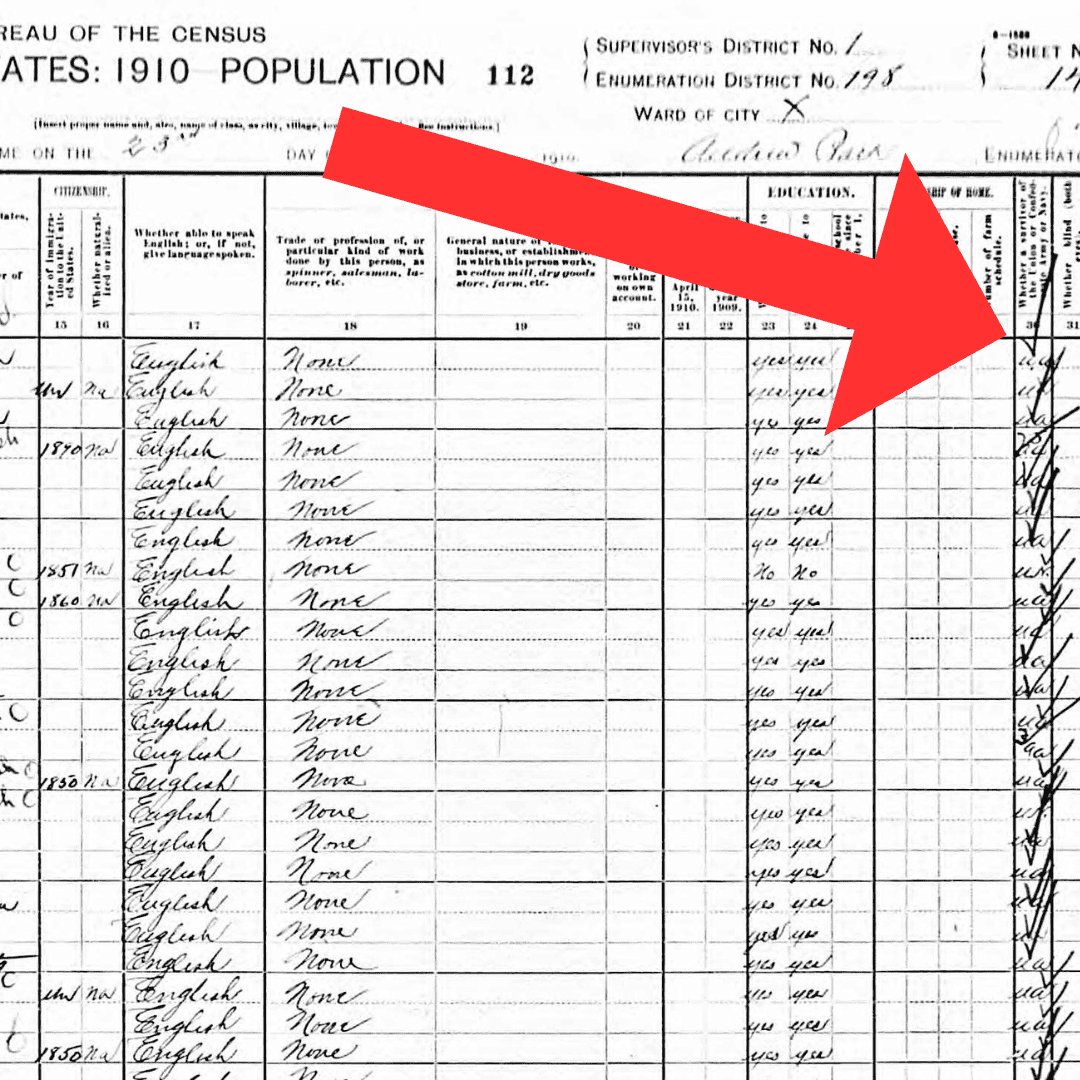 REAU OF THE CENSUS
ATES: 1910 POPULATION 112
SUPERVISOR'S DISTRICT NO. 1
ENUMERATION DISTRICT NO. 198
SHEET N
14
WARD OF CITY X
[Insert proper name and, also, name of class, as city, village,
See instructions.]
ME ON THE 23rd DAY
1910.
ENUMERATO
CITIZENSHIP.
EDUCATION.
SHIP OF HOME.
Year of immigra-
tion to the Unit-
ed States.
Whether natural-
ized or alien.
Whether able to speak
English; or, if not,
give language spoken.
Trade or profession of, or
particular kind of work
done by this person, as
spinner, salesman, la-
borer, etc.
General nature of
business, or establishment
in which this person works,
as cotton mill, dry goods
store, farm, etc.
or
working
on own
account.
April
15,
1910.
year
1909.
school
since
number of farm
schedule.
Whether a survivor of
the Union or Confed-
erate Army or Navy.
Whether blind (both
15 16 17 18 19 20 21 22 23 24 30 31
English None yes yes ua
Un Na English None yes yes
English None yes yes ua
1890 na English None yes yes
English None yes yes ua
English None yes yes
English None yes yes ua
C 1851 na English None No No
C 1860 na English None yes yes ua
O English None yes yes ua
English None yes yes ua
English None yes yes ua
C English None yes yes ua
English None yes yes ua
1850 Na English None yes yes ua
C English None yes yes
English None yes yes ua
English None yes yes ua
English None yes yes ua
English None yes yes
English None yes yes ua
C Un na English None yes yes ua
English None yes yes ua
1850 Na English None yes yes ua